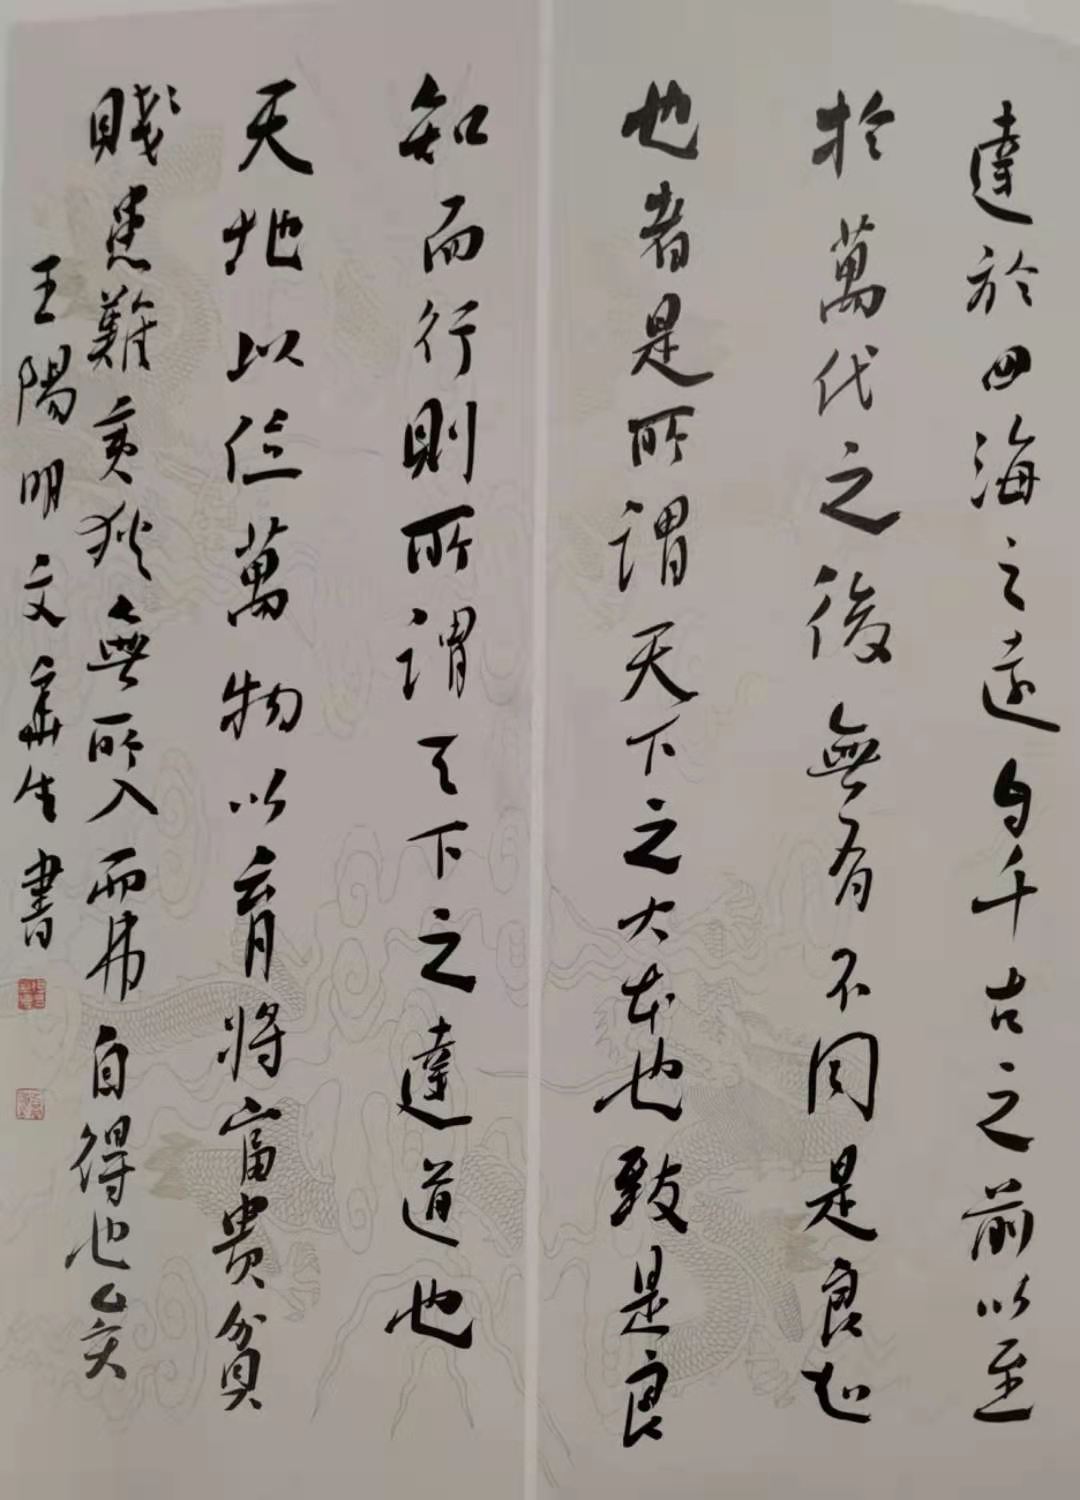 達於四海之遠自千古之前以至
於萬代之後無有不同是良知
也者是所謂天下之大本也致是良
知而行則所謂天下之達道也
天地以位萬物以育將富貴貧
賤患難夷狄無所入而弗自得也矣
王陽明文華生書